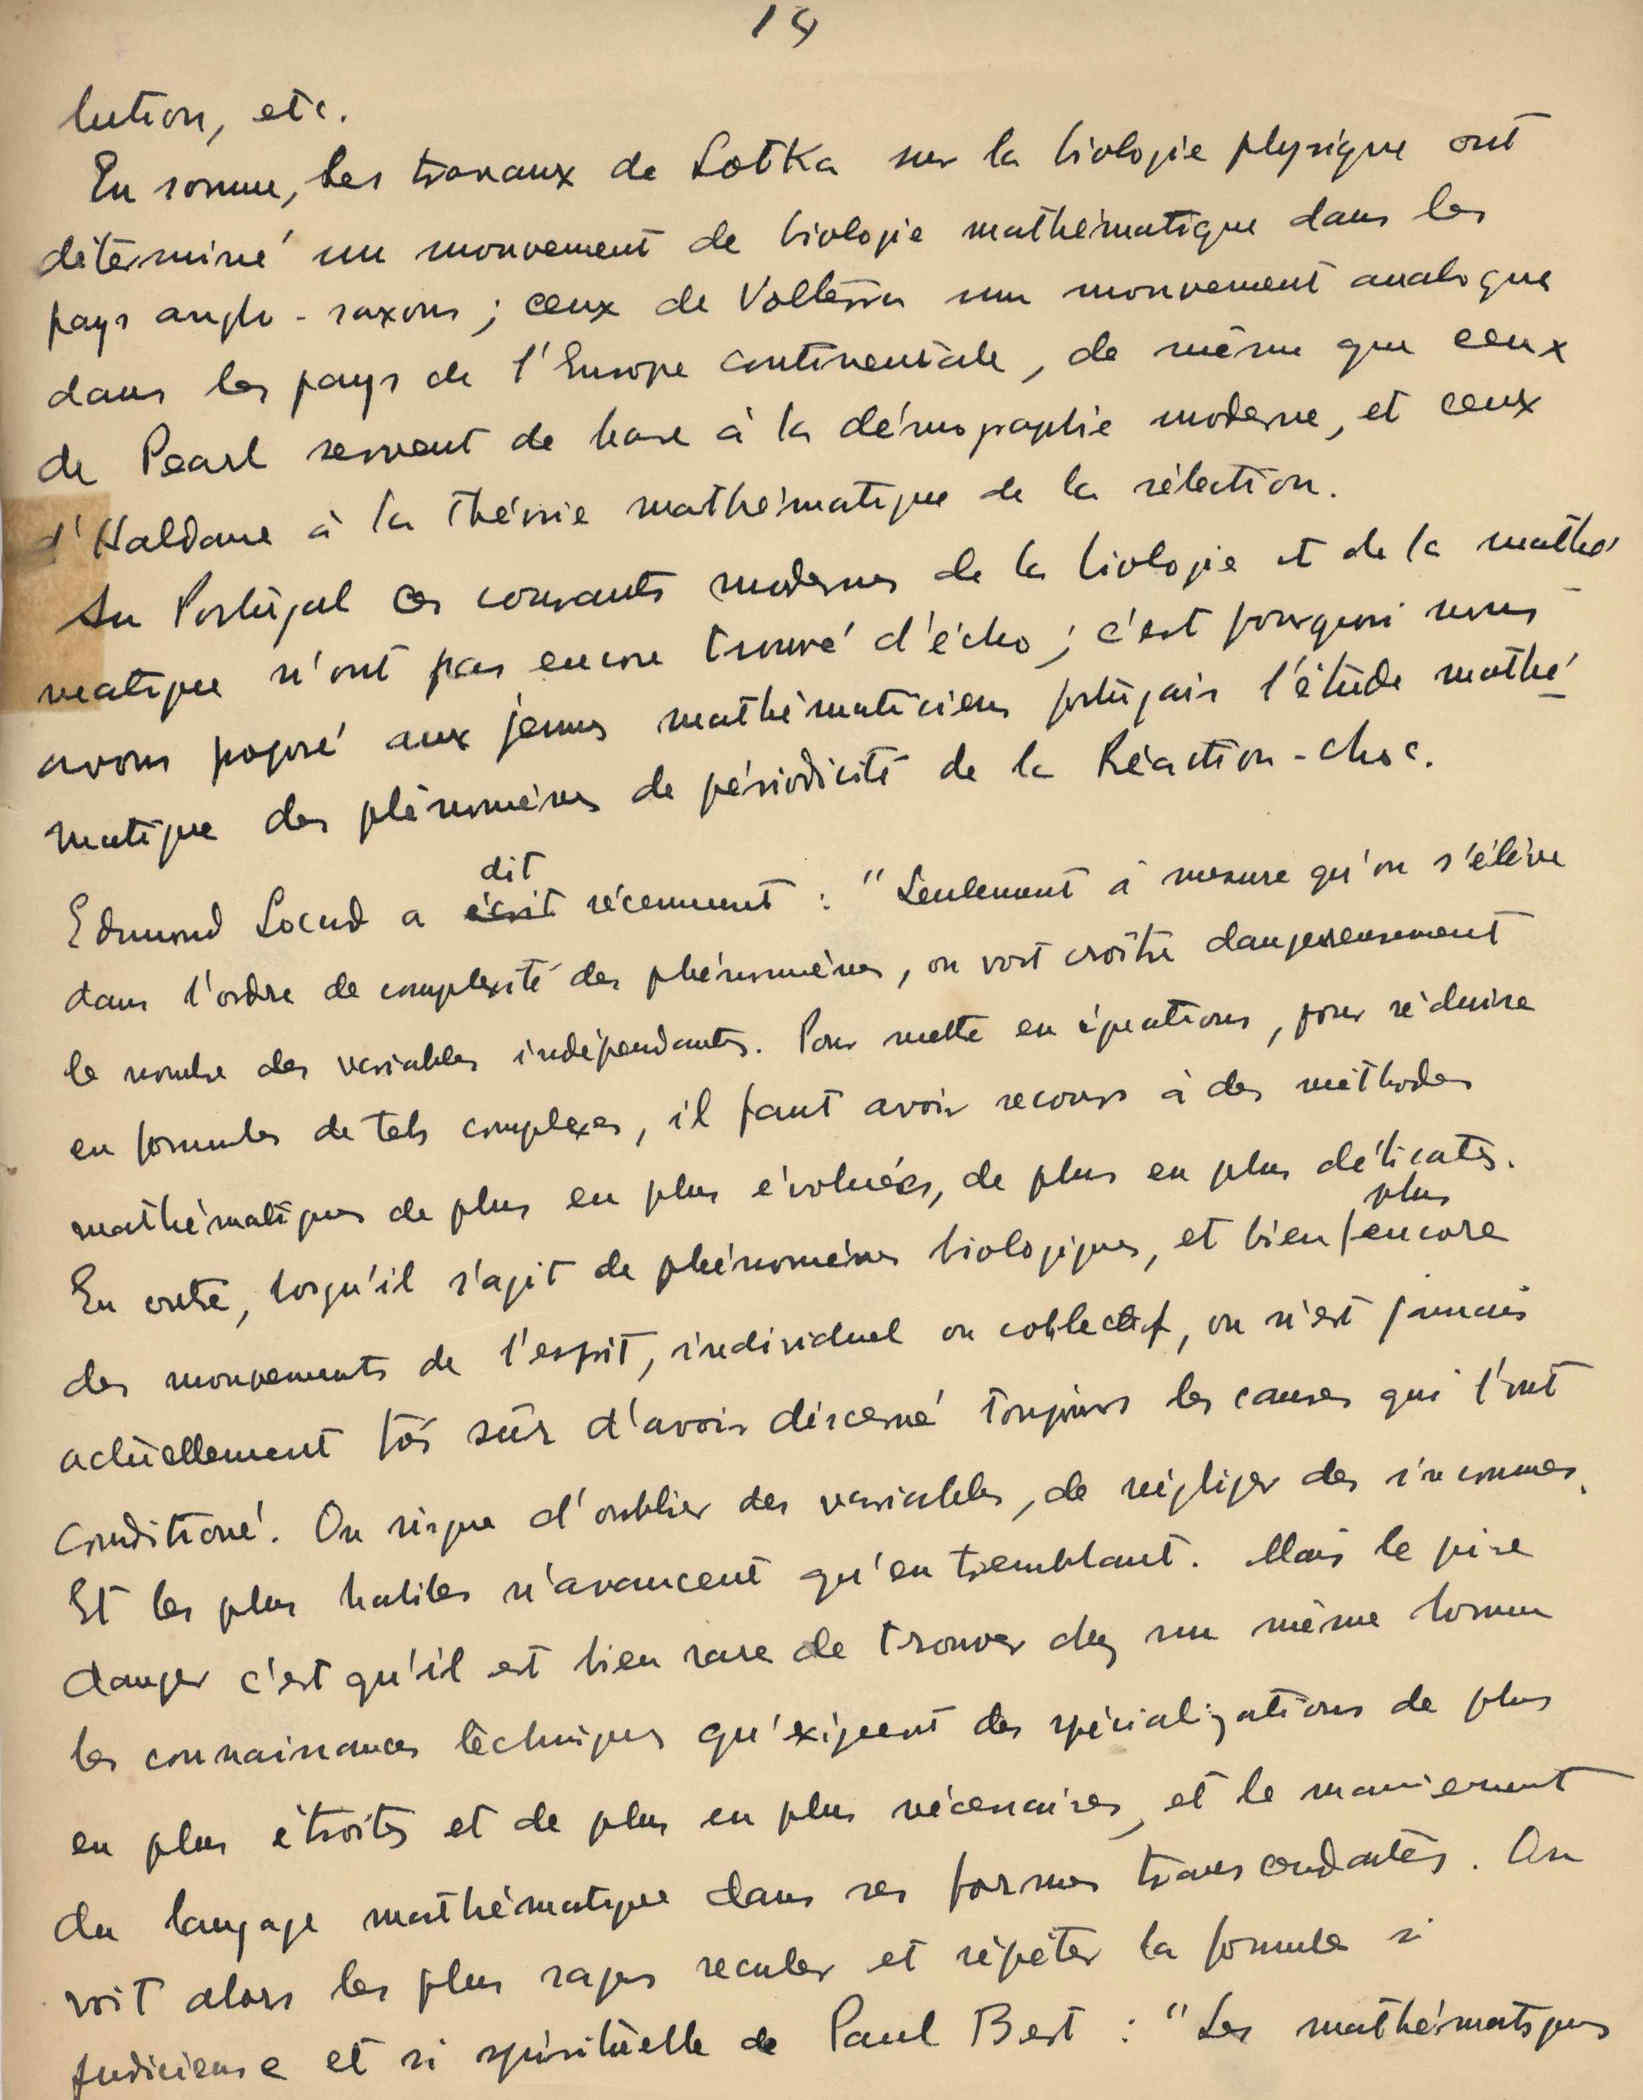 14
lution, etc.
En somme, les travaux de Lotka sur la biologie physique ont
déterminé un mouvement de biologie mathématique dans les
pays anglo-saxons; ceux de Volterra un mouvement analogue
dans les pays de l'Europe continentale, de même que ceux
de Pearl servent de base à la démographie moderne, et ceux
d'Haldane à la théorie mathématique de la sélection.
Au Portugal ces courants modernes de la biologie et de la mathé-
matique n'ont pas encore trouvé d'écho; c'est pourquoi nous
avons proposé aux jeunes mathématiciens portugais l'étude mathé-
matique des phénomènes de périodicité de la Réaction-choc.
dit
Edmond Locard a écrit récemment : "Seulement à mesure qu'on s'élève
dans l'ordre de complexité des phénomènes, on voit croître dangereusement
le nombre des variables indépendantes. Pour mettre en équations, pour réduire
en formules de tels complexes, il faut avoir recours à des méthodes
mathématiques de plus en plus évoluées, de plus en plus délicates.
plus
En outre, lorsqu'il s'agit de phénomènes biologiques, et bien encore
des mouvements de l'esprit, individuel ou collectif, on n'est jamais
actuellement sûr d'avoir discerné toujours les causes qui l'ont
conditioné. On risque d'oublier des variables, de négliger des inconnues.
Et les plus habiles n'avancent qu'en tremblant. Mais le pire
danger c'est qu'il est bien rare de trouver chez un même homme
les connaissances techniques qu'exigent des spécializations de plus
en plus étroites et de plus en plus nécessaires, et le maniement
du langage mathématique dans ses formes transcendantes. On
voit alors les plus sages reculer et répéter la formule si
judicieuse et si spirituelle de Paul Bert : "Les mathématiques